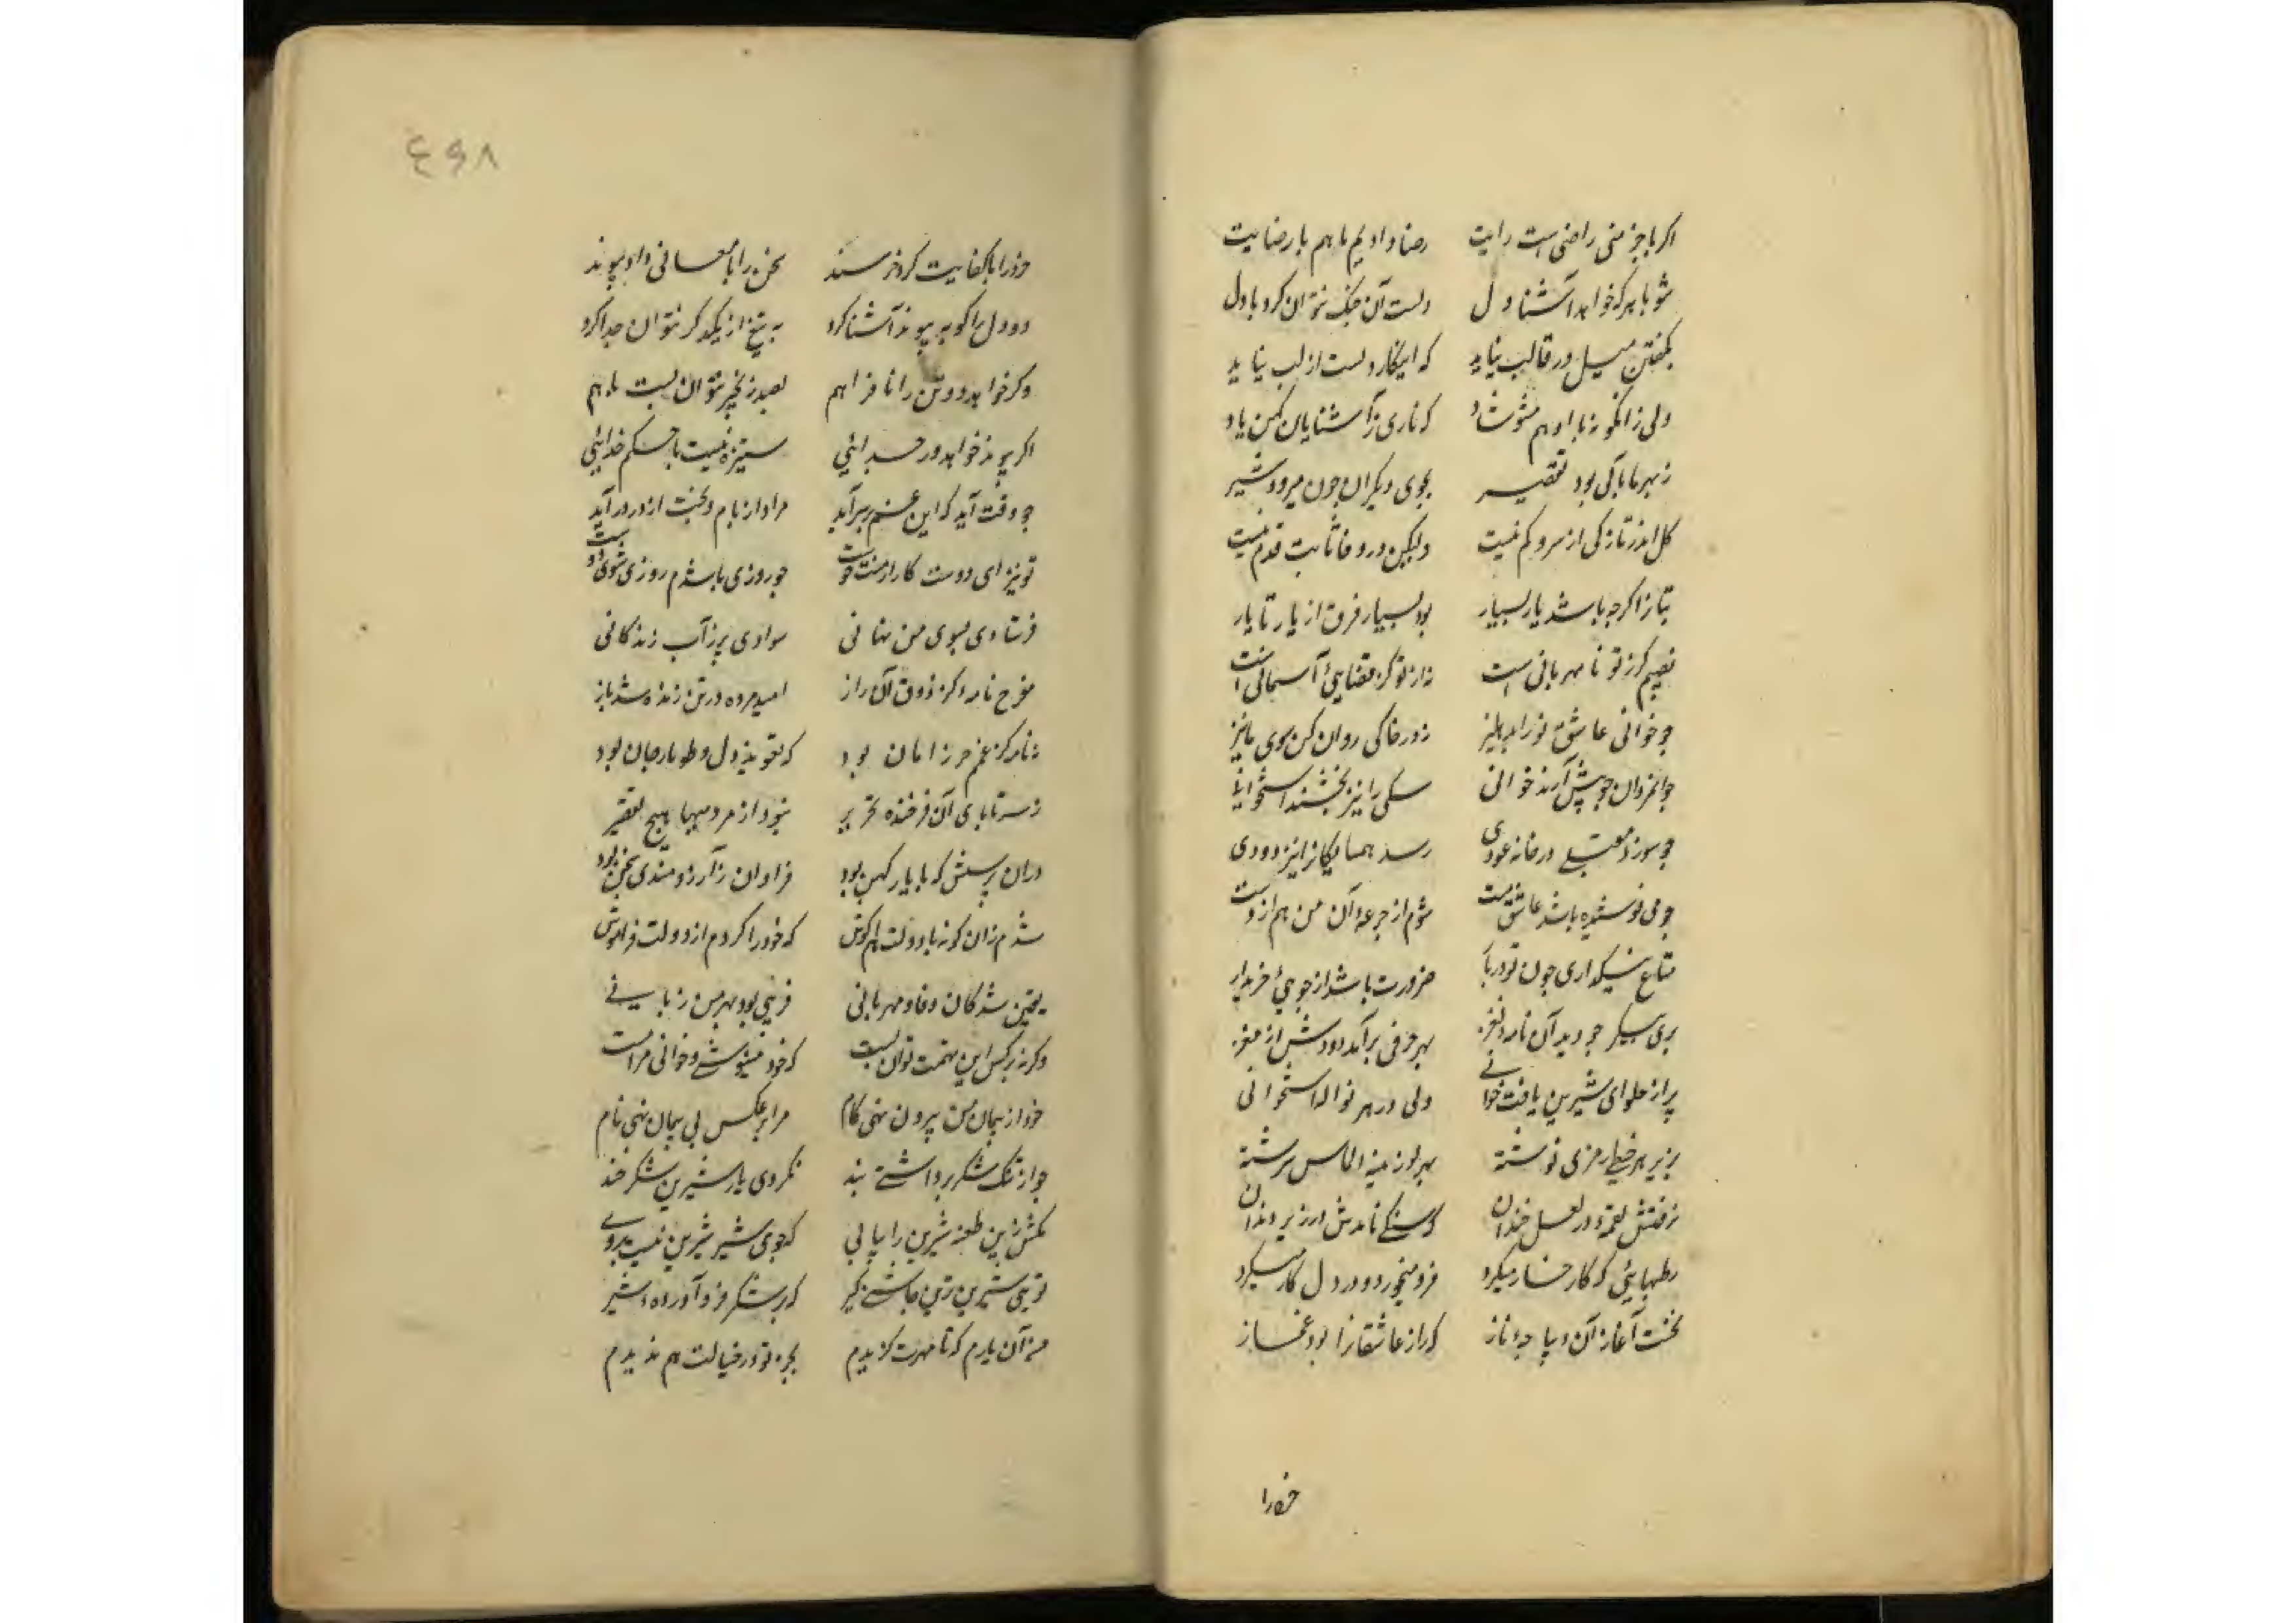 اکر با جز منی راضی است رایت    رضا دادیم ما هم با رضایت
شو با هر که خواهد آشنا دل    دلست آن جنک نتوان کرد با دل
بگفتن میل در قالب نیاید    که اینکار دلست از لب نیاید
ولی زانکونه با او هم مشو شاد    که ناری ز آشنایان کهن یاد
ز بهر ما باکی بود تقصیر    بجوی دیکران چون میرود شیر
کل اندر تازکی از سرو کم نیست    ولیکن در وفا ثابت قدم نیست
بتانرا کرچه باشد یار بسیار    بود بسیار فرق از یار تا یار
نصیبم کر ز تو نامهربانی است    نه از تو کز قضای آسمانی است
چو خوانی عاشق نو را بدهلیز    ز در خاکی روان کن سوی ما نیز
جوانمردان چو پیش آرند خوانی    سکی را نیز بخشند استخوانی
چو سوزد مقبلی در خانه عودی    رسد همسایکانرا نیز دودی
چو می نوشیده باشد عاشق مست    شوم از جرعه آن من هم از دست
متاع نیکداری چون تو در بار    ضرورت باشد از جوی خریدار
پری پیکر چو دید آن نامه نغز    بهر حرفی برآمد دودش از مغز
پر از حلوای شیرین یافت خوانی    ولی در هر نواله استخوانی
بزیر هر خطی رمزی نوشته    بهر لوزینه الماس سرشته
نرفتش لقمه در لعل خندان    که سنکی نامدش در زیر دندان
رطبهایی که کار خار میکرد    فرو میخورد و در دل کار میکرد
نخست آغاز آن دیباچه ناز    که راز عاشقانرا بود غماز
خرد را
۴۶۸
خرد را با کفایت کرد خرسند    سخن را با معانی داد پیوند
دو دل را کو به پیوند آشنا کرد    به تیغ از یکدکر نتوان جدا کرد
وکر خواهد دو تن را نا فراهم    بصد زنجیر نتوان بست با هم
اکر پیوند خواهد ور جدائی    ستیزه نیست با حکم خدائی
چو وقت آید که این غم بر سر آید    مراد از بام و بخت از در درآید
تو نیز ای دوست کار از منت خوست    چو روزی باشدم روزی شوی دوست
فرستادی بسوی من نهانی    سوادی پر ز آب زندکانی
مفرح نامه کز ذوق آن راز    امید مرده در تن زنده شد باز
نه نامه کز غم حرز امان بود    که تعویذ دل و طومار جان بود
ز سر تا پای آن فرخنده تحریر    نبود از مردمیها هیچ تقصیر
در آن پرسش که با یار کهن بود    فراوان ز آرزومندی سخن بود
شدم زان کونه با دولت هم آغوش    که خود را کردم از دولت فراموش
یقین شد کان وفا و مهربانی    فریبی بود بهر من زبانی
وکر نه بر کس این تهمت توان بست    که خود بنیوشی و خوانی مرا مست
خود از پیمان من بیرون نهی کام    مرا برعکس بی پیمان نهی نام
چو از تنک شکر برداشتی بند    نکردی یاد شیرین شکر خند
مکش زین طعنه شیرین را پیاپی    که جوی شیر شیرین نیست بر وی
تویی شیرین ترین چاشنی کیر    که بر شکر فرو آورده شیر
من آن یارم که تا مهرت کزیدم    بجز تو در خیالت هم ندیدم